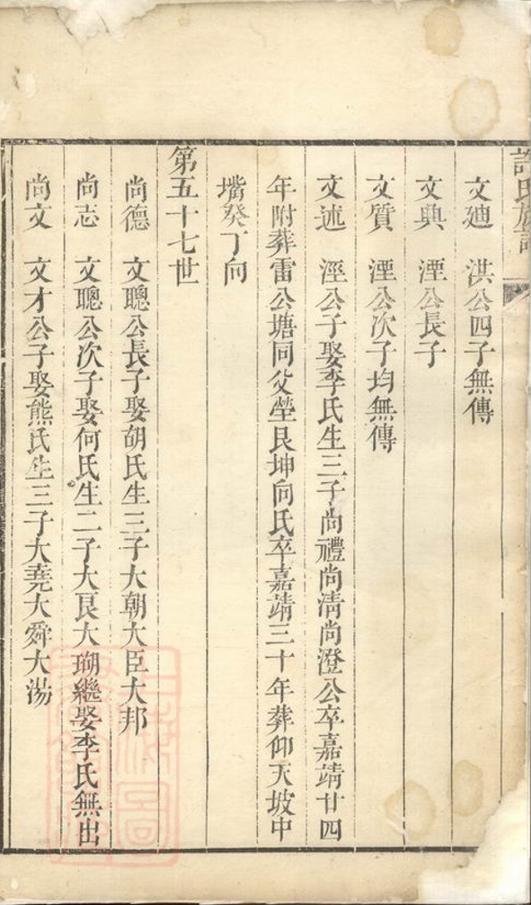 許氏族譜
文廸　洪公四子無傳
文典　湮公長子
文質　湮公次子均無傳
文述　涇公子娶李氏生三子尚禮尚清尚澄公卒嘉靖廿四
年附葬雷公塘同父塋艮坤向氏卒嘉靖三十年葬仰天坡中
嘴癸丁向
第五十七世
尚德　文聰公長子娶胡氏生三子大朝大臣大邦
尚志　文聰公次子娶何氏生二子大良大瑚繼娶李氏無出
尚文　文才公子娶熊氏生三子大堯大舜大湯